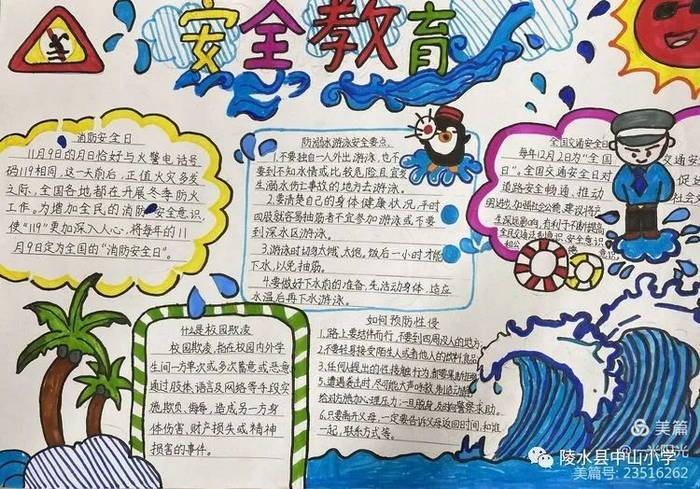 安全教育
消防安全日
11月9日的月日恰好与火警电话号
码119相同,这一天前后,正值火灾多发
之际,全国各地都在开展冬季防火
工作。为增加全民的消防安全意识,
使"119"更加深入人心,将每年的11
月9日定为全国的"消防安全日"。
防溺水游泳安全要点
1.不要独自一人外出游泳,也不
要到不知水情或比较危险且宜发
生溺水伤亡事故的地方去游泳。
2.要清楚自己的身体健康状况,平时
四肢就容易抽筋者不宜参加游泳或不要
到深水区游泳。
3.游泳时切勿太饿、太饱。饭后一小时才能
下水,以免抽筋。
4.要做好下水前的准备,先活动身体,适应
水温后再下水游泳。
全国交通安全日
每年12月2日为"全国
交通安
日"。全国交通安全日对
促
道路安全畅通,推动
社会
什么是校园欺凌
校园欺凌,指在校园内外学
生间一方单次或多次蓄意或恶意
通过肢体、语言及网络等手段实
施欺负、侮辱,造成另一方身
体伤害、财产损失或精神
损害的事件。
如何预防性侵
1.路上要结伴而行,不要到四周没人的地方
2.不要轻易接受陌生人或者他人的饮料食品
6.只要离开父母,一定要告诉父母返回时间,和谁
一起,联系方式等。
美篇
陵水县中山小学
美篇号: 23516262